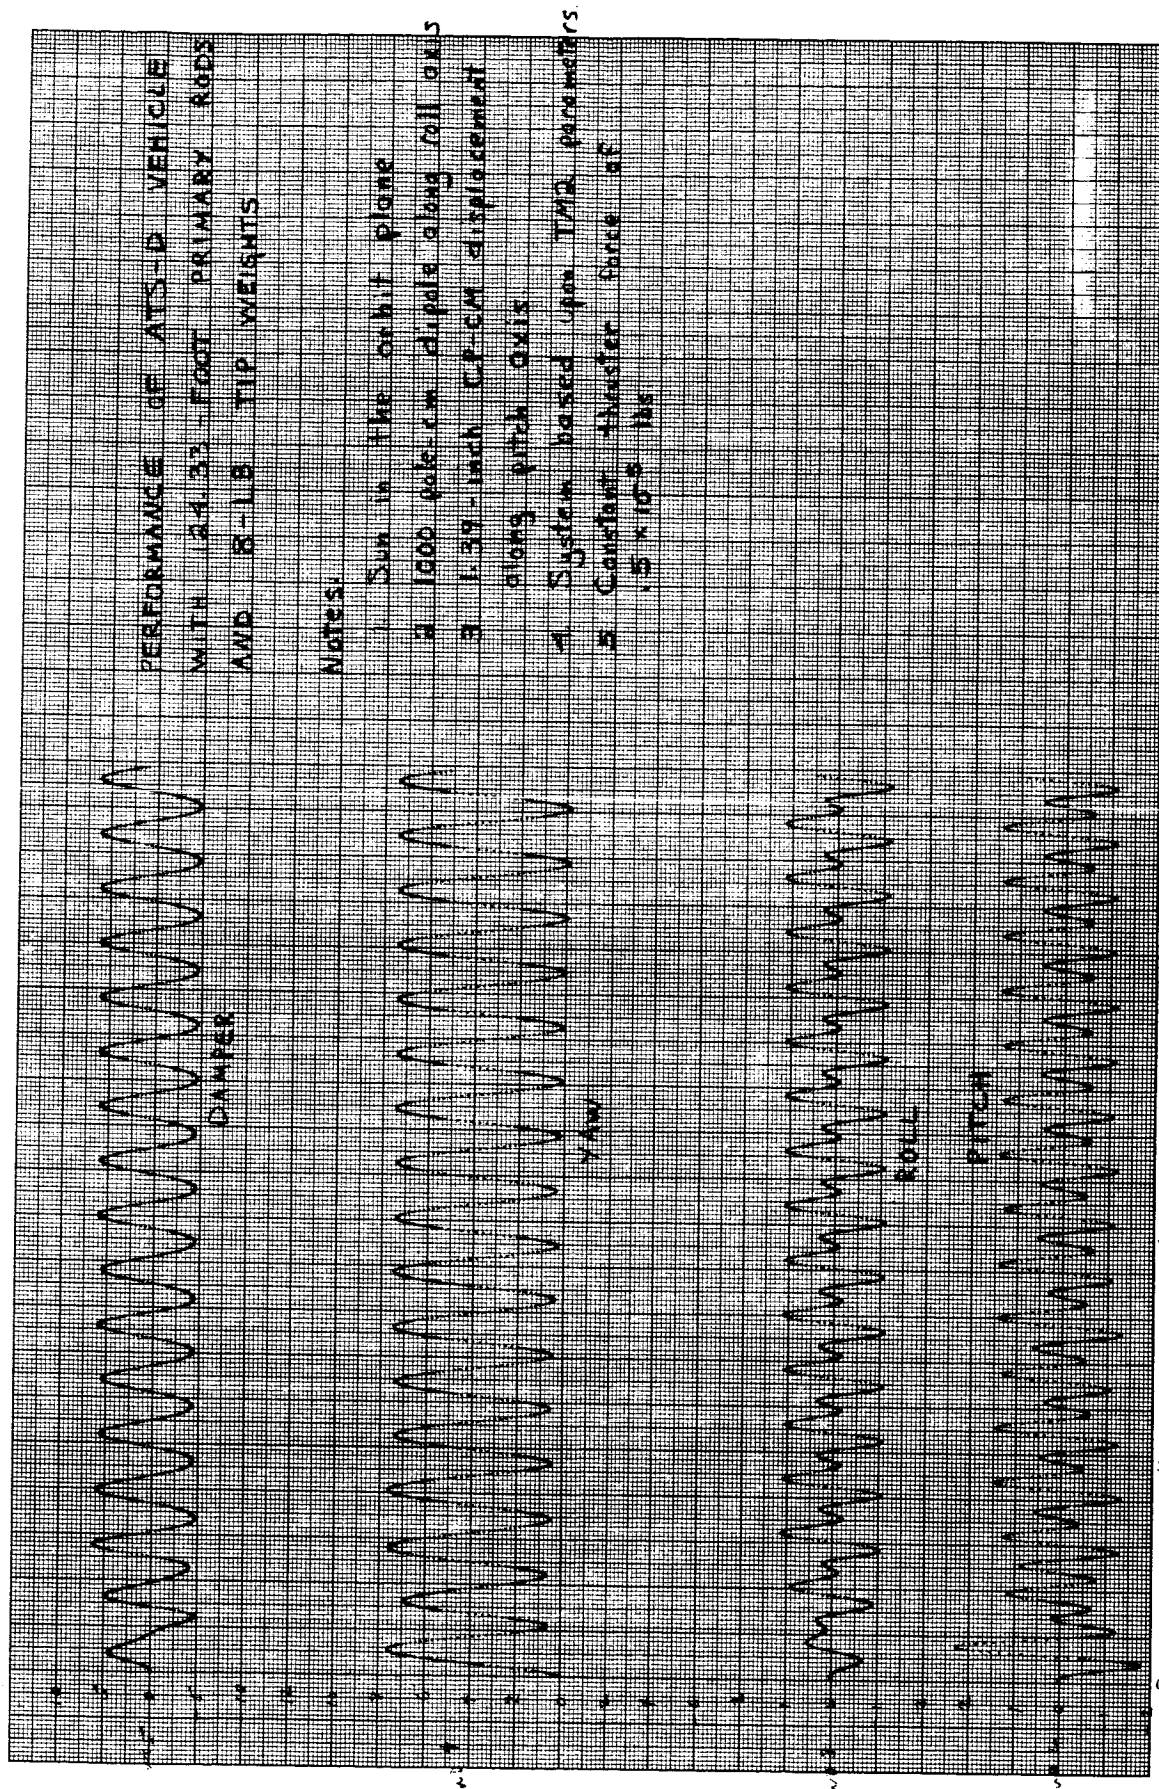 PERFORMANCE OF ATS-D VEHICLE
WITH 124.33-FOOT PRIMARY RODS
AND 8-LB TIP WEIGHTS
Notes:
1 Sun in the orbit plane
2 1000 pole-cm dipole along roll axis
3 1.39-inch CP-CM displacement
along pitch axis
4. System based upon TM2 parameters.
5 Constant thruster force of
.5 x 10⁻⁵ lbs
DAMPER
YAW
ROLL
PITCH